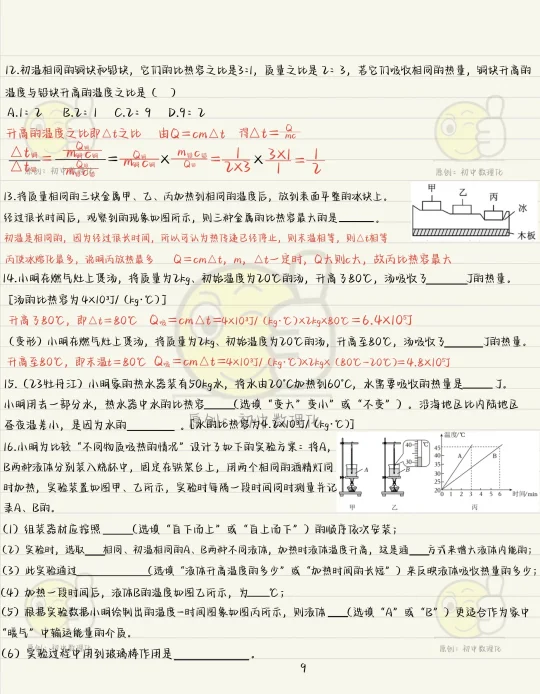 12.初温相同的铜块和铅块，它们的比热容之比是3:1，质量之比是 2: 3，若它们吸收相同的热量，铜块升高的
温度与铅块升高的温度之比是（　）
A.1: 2　B.2: 1　C.2: 9　D.9: 2
升高的温度之比即△t之比　由Q=cm△t　得△t=Q/mc
△t铜/△t铅=(Q铜/m铜c铜)/(Q铅/m铅c铅)=Q铜/m铜c铜×m铅c铅/Q铅=1/2X3×3X1/1=1/2
原创：初中数理化
原创：初中数理化
13.将质量相同的三块金属甲、乙、丙加热到相同的温度后，放到表面平整的冰块上。
经过很长时间后，观察到的现象如图所示，则三种金属的比热容最大的是______。
甲 乙 丙
冰
木板
初温是相同的，因为经过很长时间，所以可认为热传递已经停止，则末温相等，则△t相等
丙使冰熔化最多，说明丙放热最多　Q=cm△t，m，△t一定时，Q大则c大，故丙比热容最大
14.小明在燃气灶上煲汤，将质量为2kg、初始温度为20℃的汤，升高了80℃，汤吸收了______J的热量。
[汤的比热容为4X10³J/（kg·℃）]
升高了80℃，即△t=80℃　Q吸=cm△t=4X10³J/（kg·℃）X2kgX80℃=6.4X10⁵J
（变形）小明在燃气灶上煲汤，将质量为2kg、初始温度为20℃的汤，升高至80℃，汤吸收了______J的热量。
升高至80℃，即末温t=80℃ Q吸=cm△t=4X10³J/（kg·℃）X2kgX（80℃-20℃）=4.8X10⁵J
15.（23牡丹江）小明家的热水器装有50kg水，将水由20℃加热到60℃，水需要吸收的热量是______J。
小明用去一部分水，热水器中水的比热容______（选填“变大”变小”或“不变”）。沿海地区比内陆地区
昼夜温差小，是因为水的__________。[水的比热容为4.2X10³J/（kg·℃）]
16.小明为比较“不同物质吸热的情况”设计了如下的实验方案：将A，
B两种液体分别装入烧杯中，固定在铁架台上，用两个相同的酒精灯同
时加热，实验装置如图甲、乙所示，实验时每隔一段时间同时测量并记
录A、B的。
A
B
40
30
℃
甲　乙　丙
温度/℃
45
40
35
30
25
20
A B
0 1 2 3 4 5 6 时间/min
（1）组装器材应按照______（选填“自下而上”或“自上而下”）的顺序依次安装；
（2）实验时，选取____相同、初温相同的A、B两种不同液体，加热时液体温度升高，这是通____方式来增大液体内能的；
（3）此实验通过______________（选填“液体升高温度的多少”或“加热时间的长短”）来反映液体吸收热量的多少；
（4）加热一段时间后，液体B的温度如图乙所示，为____℃；
（5）根据实验数据小明绘制出的温度－时间图象如图丙所示，则液体____（选填“A”或“B”）更适合作为家中
“暖气”中输运能量的介质。
（6）实验过程中用到玻璃棒作用是______________。
原创：初中数理化
原创：初中数理化
9